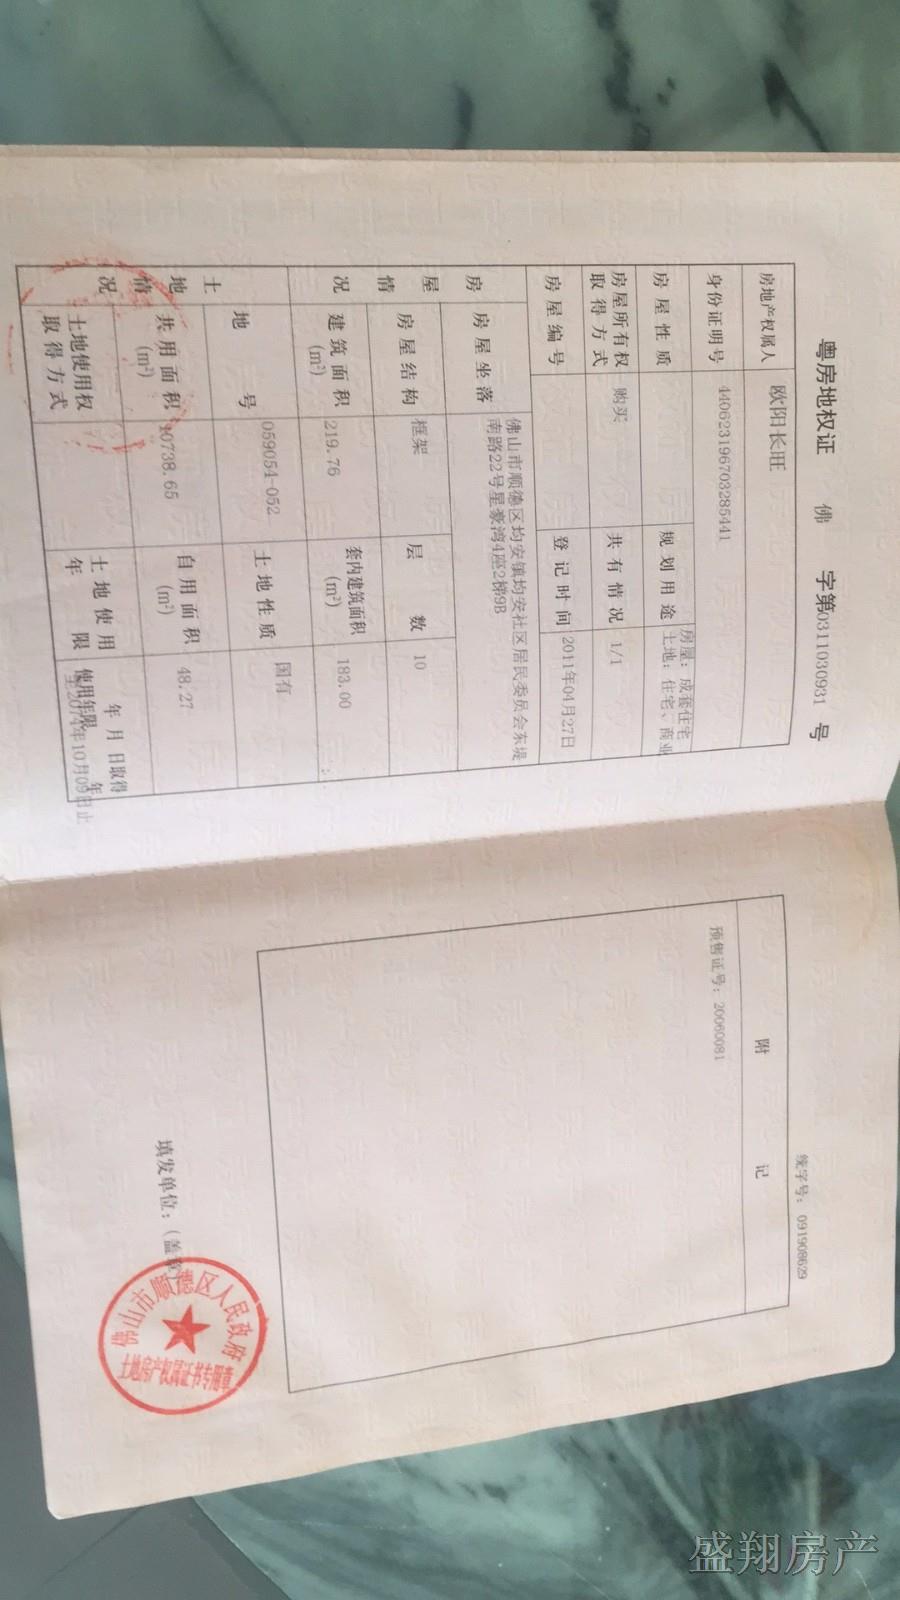 粤房地权证 佛 字第0311030931 号
房地产权属人 欧阳长旺
身份证明号 440623196703285441
房屋性质 规划用途 房屋：成套住宅
土地：住宅、商业
房屋所有权取得方式 购买 共有情况 1/1
房屋编号 登记时间 2011年04月27日
房屋情况 房屋坐落 佛山市顺德区均安镇均安社区居民委员会东堤
南路22号星豪湾4座2梯9B
房屋结构 框架 层数 10
建筑面积(m²) 219.76 套内建筑面积(m²) 183.00
土地情况 地号 059054-052 土地性质 国有
共用面积(m²) 10738.65 自用面积(m²) 48.27
土地使用权取得方式 土地使用年限 年 月 日取得
使用年限 年
至2074年10月09日止
统字号：091908629
附 记
预售证号：20060081
填发单位：（盖章）
佛山市顺德区人民政府
土地房产权属证书专用章
盛翔房产